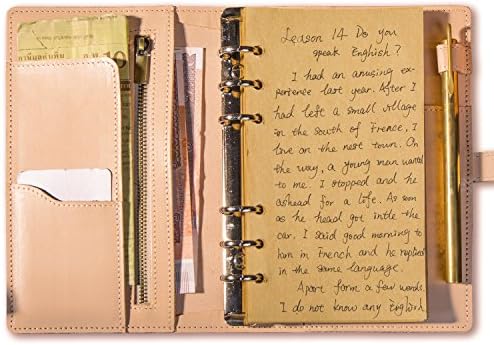 10
Leason 14 Do you
speak Enghish?
I had an amusing ex-
perience last year. After I
had left a small village
in the south of Frence, I
love on the nest town. On
the way, a young man waved
to me. I stopped and he
ashead for a life. As soon
as he head got intle the
car. I said good morning to
him in French and he replied
in the same language.
Apart form a few words.
I do not know any English